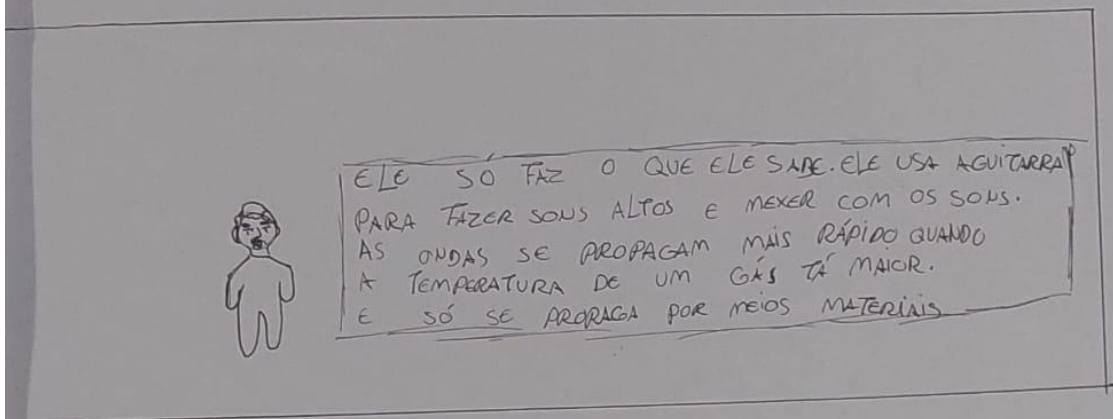 ELE SÓ FAZ O QUE ELE SABE. ELE USA A GUITARRA
PARA FAZER SONS ALTOS E MEXER COM OS SONS.
AS ONDAS SE PROPAGAM MAIS RÁPIDO QUANDO
A TEMPERATURA DE UM GÁS TÁ MAIOR.
E SÓ SE PROPAGA POR MEIOS MATERIAIS